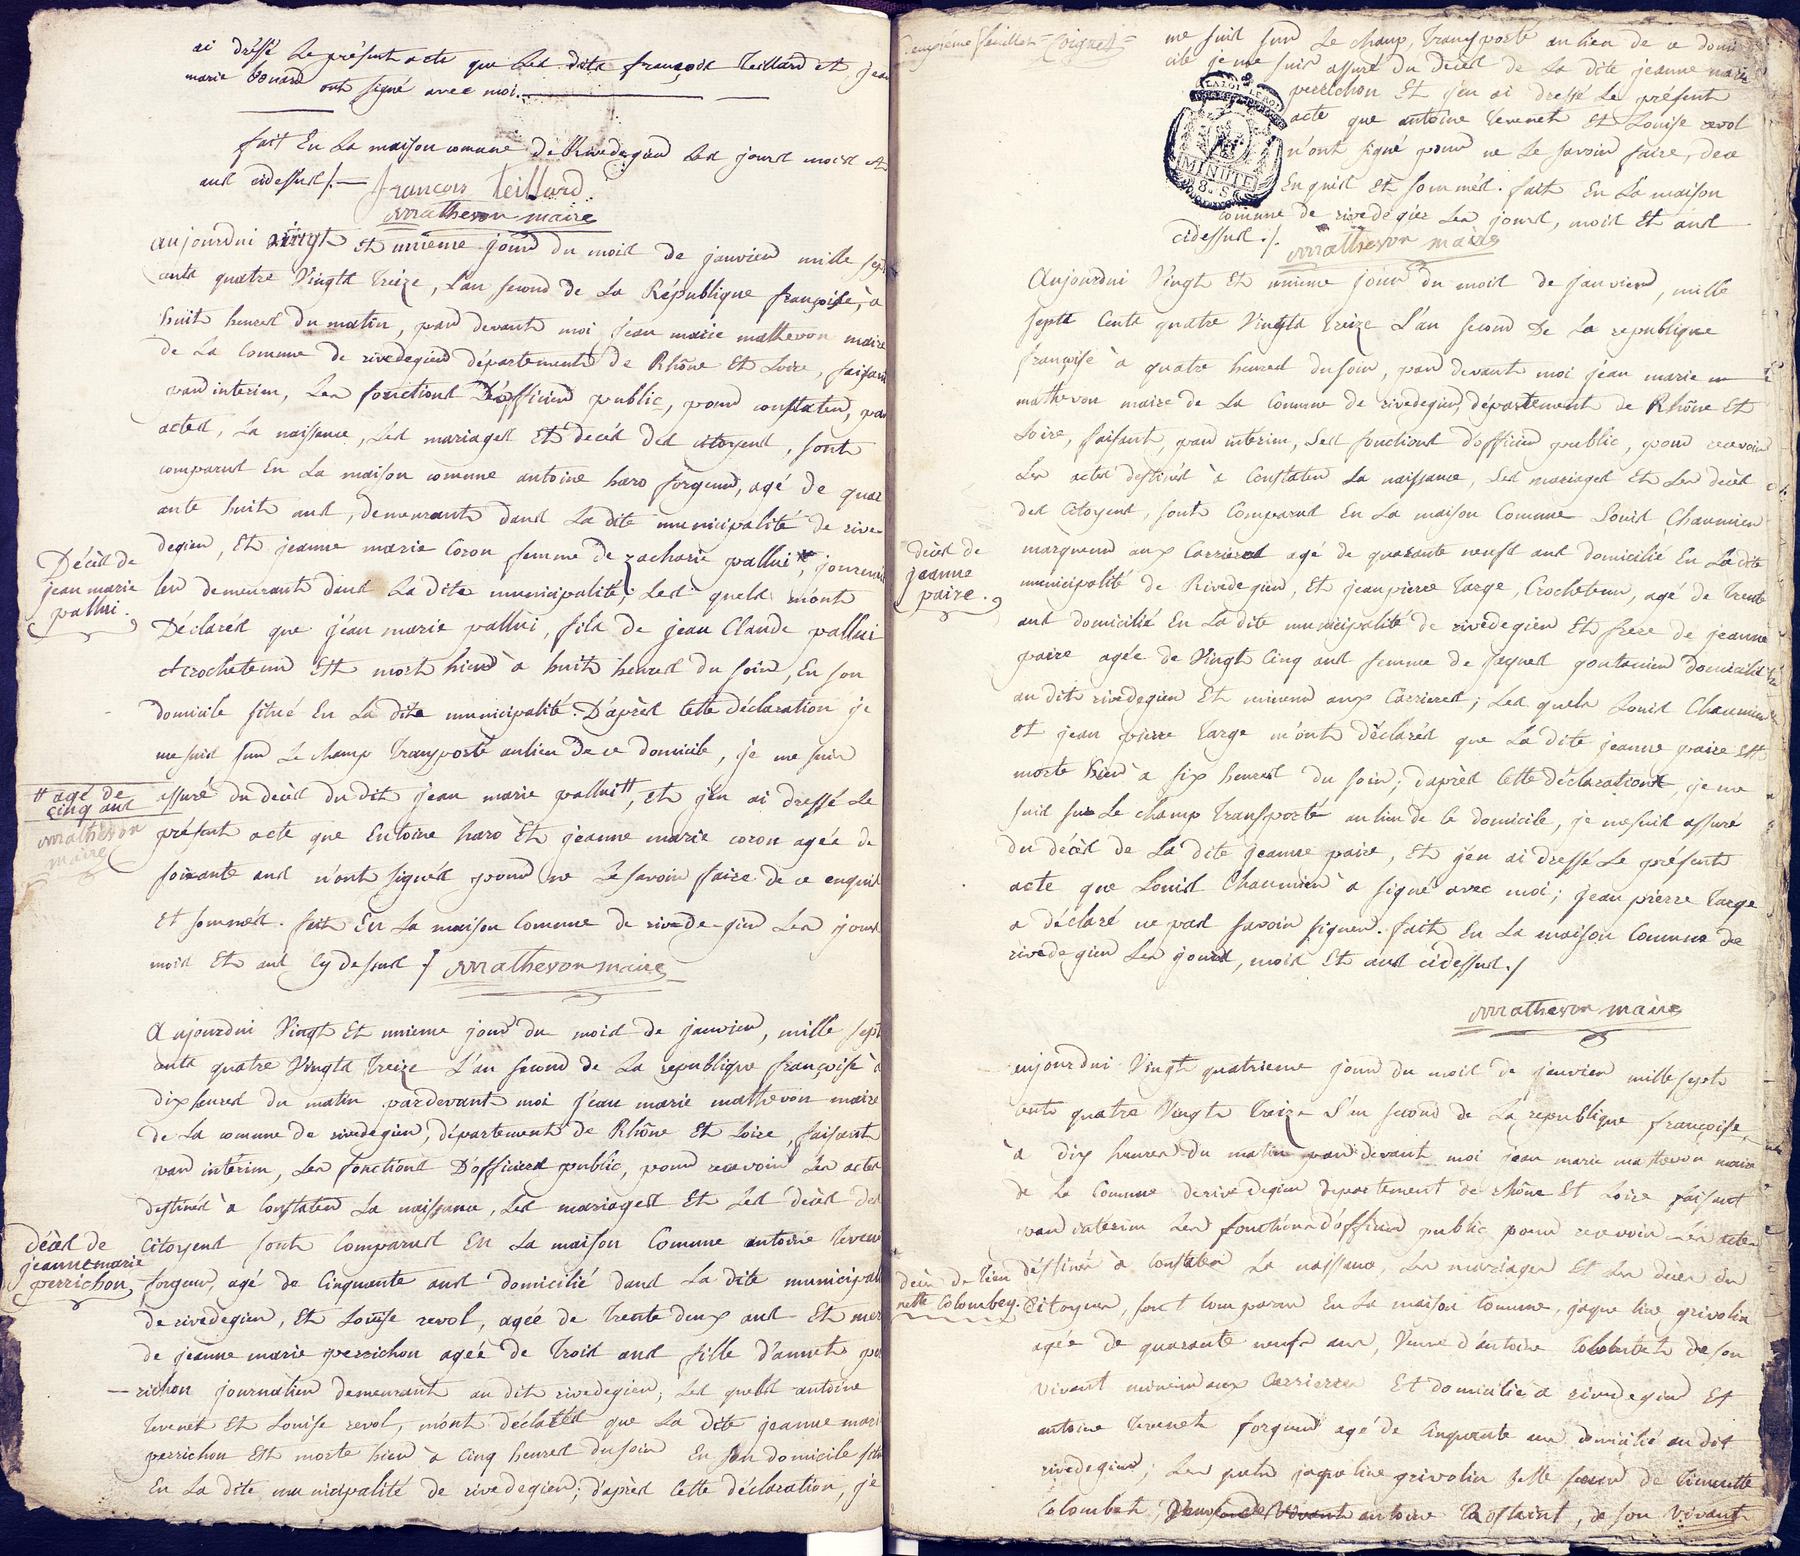 ai dréssé Le présent acte que Les dits françois teillard et jean
marie bonard ont signé avec moi.
fait En La maison comune de Rivedegier Les jours mois et
ans cidessus /.
françois teillard
Matheron maire
aujourdui vingt et unieme jour du mois de janvier mille sept
cents quatre Vingts treize, L'an second de La République françoise, à
huit heures du matin, par devant moi jean marie mathevon maire
de La Commune de rivedegier département de Rhône Et Loire, faisant
par interim, Les fonctions D'officier public, pour constater, par
actes, La naissance, Les mariages Et décès des citoyens, sont
comparus En La maison comune antoine haro forgeur, agé de quar
ante huit ans, demeurants dans La dite municipalité de rive
degier, Et jeanne marie Coron femme de zacharie pallui, journa
lier demeurants dans La dite municipalité, Les quels m'ont
Déclarés que jean marie pallui, fils de jean Claude pallui
crocheteur Est mort hier à huit heures du soir, En son
domicile situé En La dite municipalité. D'après cette déclaration je
me suis sur Le champ Transporté au lieu de ce domicile, je me suis
assuré du décès du dit jean marie pallui #, Et j'en ai dressé Le
présent acte que Entoine haro Et jeanne marie coron agée de
soixante ans n'ont signés pour ne Le savoir faire de ce enquis
Et sommés. fait En La maison Commune de rivedegier Les jours
mois Et ans cy dessus / Mathevon maire
Décès de
jean marie
pallui.
# agé de
cinq ans
Mathevon
maire
Aujourdui Vingt Et unieme jour du mois de janvier, mille sept
cents quatre Vingts treize L'an second de La republique françoise à
dix heures du matin pardevant moi jean marie mathevon maire
de La commune de rivedegier, département de Rhône Et Loire, faisant
par intérim, Les fonctions D'officier public, pour recevoir Les actes
destinés à Constater La naissance, Les mariages Et Les décès des
Citoyens sont Comparus En La maison Commune antoine tevenet
forgeur, agé de Cinquante ans domicilié dans La dite municipali
de rivedegier, Et Louise revol, agée de trente deux ans Et mere
de jeanne marie perrichon agée de trois ans fille d'annet per
richon journalier demeurant au dit rivedegier; Les quels antoine
tevenet Et Louise revol, m'ont déclarés que La dite jeanne marie
perrichon Est morte hier à cinq heures du soir En son domicile situé
En La dite municipalité de rivedegier; d'après cette déclaration, je
décès de
jeanne marie
perrichon
deuxiéme feuillet
me suis sur Le champ, transporté au lieu de ce domi
cile je me suis assuré du décès de La dite jeanne marie
perrichon Et j'en ai dressé Le présent
acte que antoine tevenet Et Louise revol
n'ont signé pour ne Le savoir faire, de ce
Enquis Et sommés. fait En La maison
comune de rivedegier Les jours, mois Et ans
cidessus./.
Mathevon maire
LA LOI LE ROI
MINUTE
8. S.
Aujourdui Vingt Et unieme jour du mois de janvier, mille
septs Cents quatre Vingts treize L'an second De La republique
françoise à quatre heures du soir, par devant moi jean marie m
mathevon maire de La Comune de rivedegier, département de Rhône Et
Loire, faisant, par intérim, Les fonctions d'officier public, pour recevoir
Les actes destinés à Constater La naissance, Les mariages Et Les décès
des Citoyens, sont Comparus En La maison Commune Louis Chaumier
marqueur aux Carrieres agé de quarante neufs ans domicilié En La dite
municipalité de Rivedegier, Et jean pierre targe, Crocheteur, agé de trente
ans domicilié En La dite municipalité de rivedegier Et frere de jeanne
paire agée de Vingt Cinq ans femme de jaques domicilié
au dit rivedegier Et mineur aux Carrieres; Les quels Louis Chaumier
Et jean pierre targe m'ont déclarés que La dite jeanne paire Est
morte hier à six heures du soir; d'après cette déclaration, je me
suis sur Le champ Transporté au lieu de ce domicile, je me suis assuré
du décès de La dite jeanne paire, Et j'en ai dressé Le présent
acte que Louis Chaumier a signé avec moi; jean pierre targe
a déclaré ne pas savoir signer. fait En La maison Commune de
rivedegier Les jours, mois Et ans cidessus./
Mathevon maire
décès de
jeanne
paire.
aujourdui Vingt quatrieme jour du mois de janvier mille septs
cents quatre Vingts treize L'an second de La republique françoise,
à dix heures du matin par devant moi jean marie mathevon maire
de La Comune de rivedegier departement de rhône Et Loire faisant
par interim Les fonctions d'officier public pour recevoir Les actes
destinés à Constater La naissance, Les mariages Et Les décès des
Citoyens, sont Comparus En La maison Comune, jaqueline grivolin
agée de quarante neufs ans, Veuve d'antoine de son
vivant mineur aux Carrieres Et domicilié à rivedegier Et
antoine tevenet forgeur agé de Cinquante ans domicilié au dit
rivedegier; Les quels jaqueline grivolin de
Colombet, antoine, de son vivant
colombey.